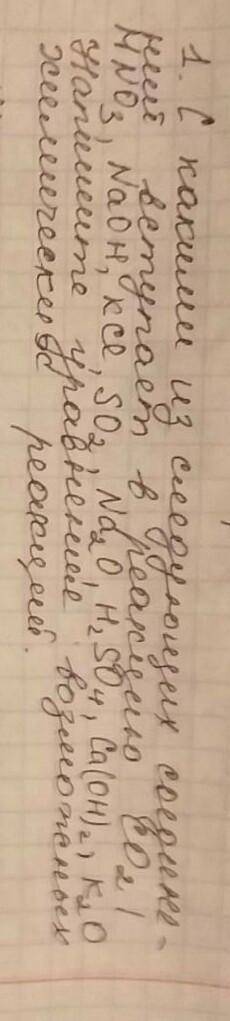 1. С какими из следующих соедине-
ний вступает в реакцию CO2!
HNO3, NaOH, KCl, SO2, Na2O H2SO4, Ca(OH)2, K2O
Напишите уравнения возможных
химических реакций.